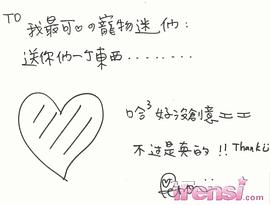 TO
我最可♡的寵物迷們：
送你們一个東西........
哈³ 好沒創意ㄈㄈ
不过是真的!! Thank
irensi.com